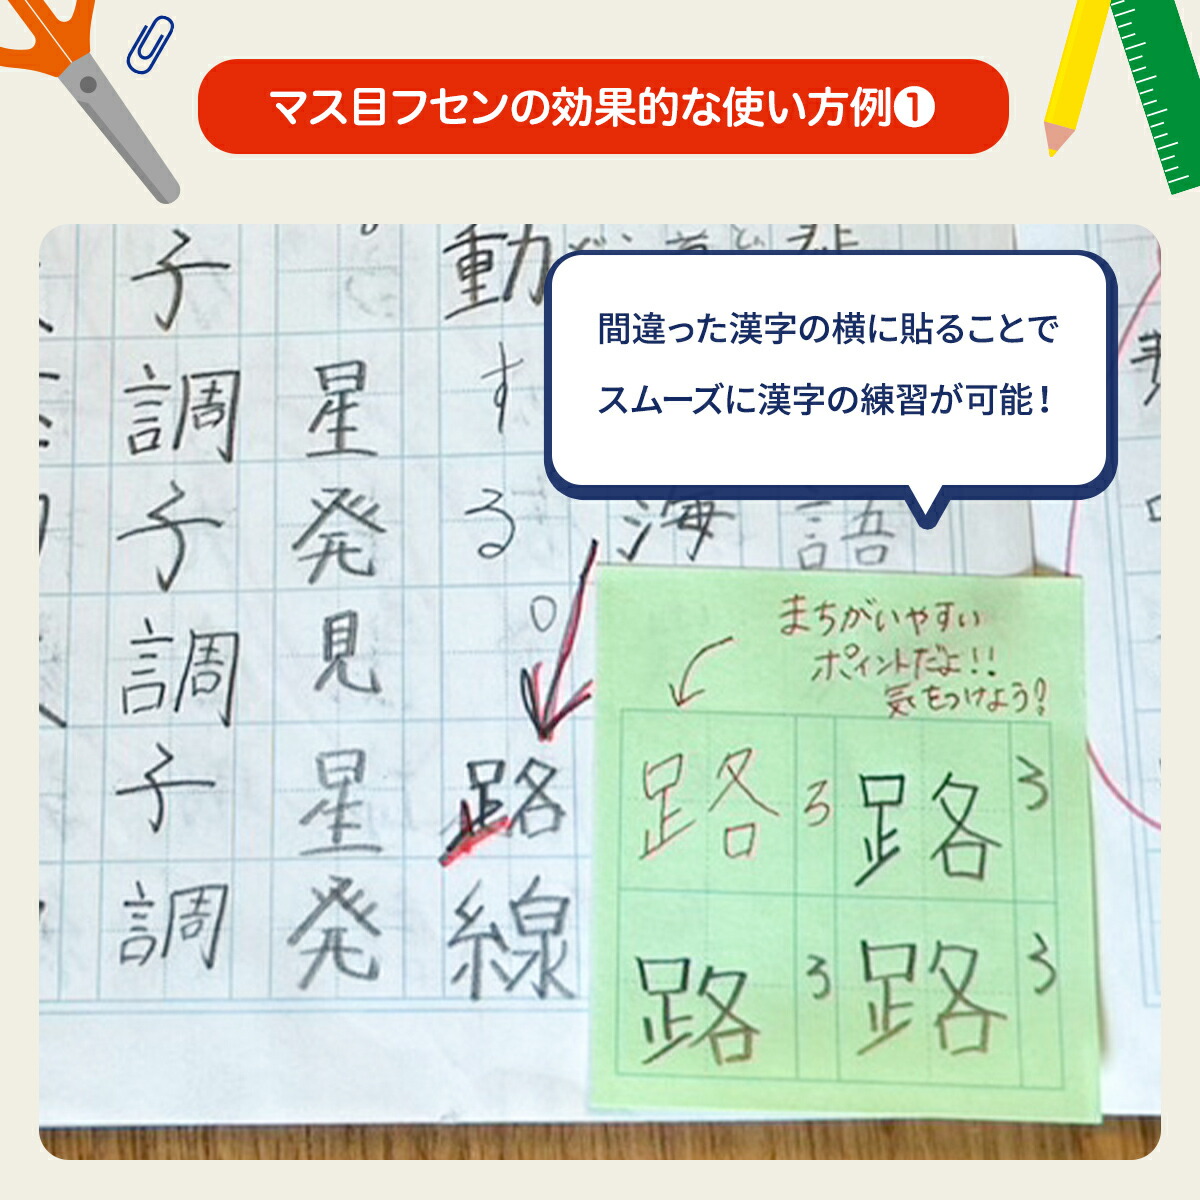 マス目フセンの効果的な使い方例❶
間違った漢字の横に貼ることで
スムーズに漢字の練習が可能！
語
海
動
する
。
路線
星発見
星発
子調子調
子調
まちがいやすい
ポイントだよ!!
気をつけよう!
路 ろ 路 ろ
路 ろ 路 ろ